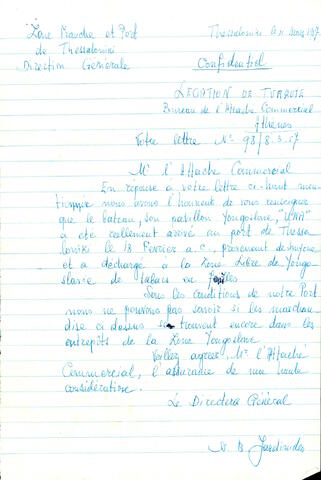 Zone Franche et Port
de Thessaloniki
Direction Générale
Thessaloniki le 11 Mars
Confidentiel
LEGATION DE TURQUIE
Bureau de l'Attache Commercial
Athenes
Votre lettre No 98/8.3.57
Mr l'Attache Commercial
En réponse à votre lettre ci-haut men-
tionnée nous avons l'honneur de vous renseigner
que le bateau, son pavillon Yougoslave, "UNA"
a été reellement arrivé au port de Thessa-
loniki le 18 Fevrier a.c., provenant de
et a déchargé à la Zone Libre de Yougo-
slavie de tabacs en feuilles
Sous les conditions de notre Port
nous ne pouvons pas savoir si les marchan-
dise ci dessus se trouvent encore dans les
entrepôts de la Zone Yougoslave.
Veillez agreer, Mr. l'Attaché
Commercial, l'assurance de ma haute
considération.
Le Directeur Général